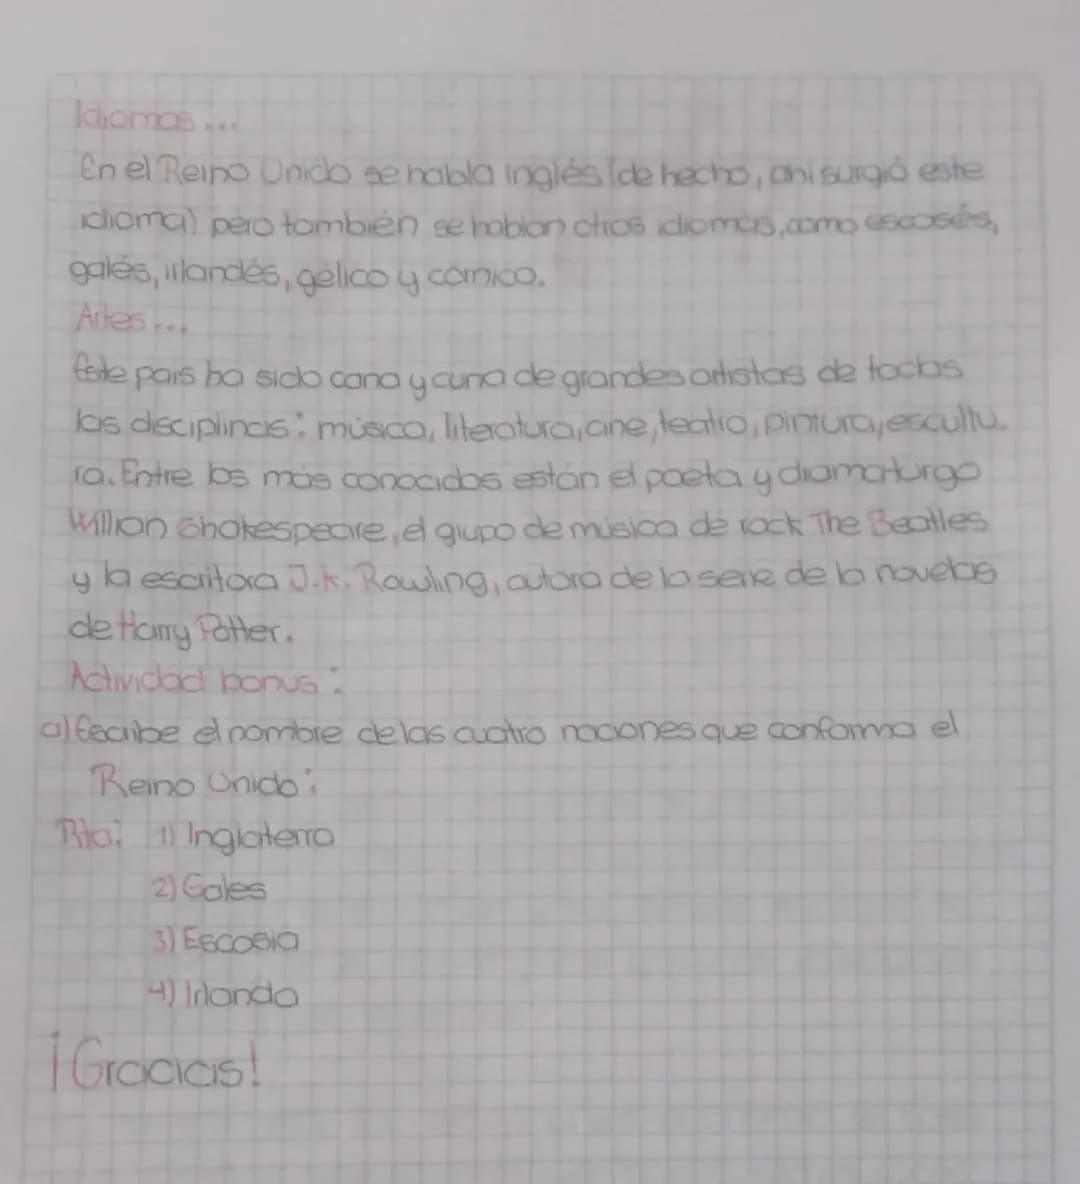 Idiomas...
En el Reino Unido se habla inglés (de hecho, ahi surgió este
idioma) pero también se hablan otros idiomas, como escosés,
galés, irlandés, gélico y cornico.
Artes...
Este pais ha sido cana y cuna de grandes artistas de todas
las disciplinas: música, literatura, cine, teatro, pintura, escultu
ra. Entre los más conocidos están el poeta y dramaturgo
Willian Shakespeare, el grupo de música de rock The Beatles
y la escritora J.K. Rowling, autora de la serie de la novelas
de Harry Potter.
Actividad bonus:
a) Escribe el nombre de las cuatro naciones que conforma el
Reino Unido:
Rta: 1) Inglaterra
2) Gales
3) Escosia
4) Irlanda
¡Gracias!